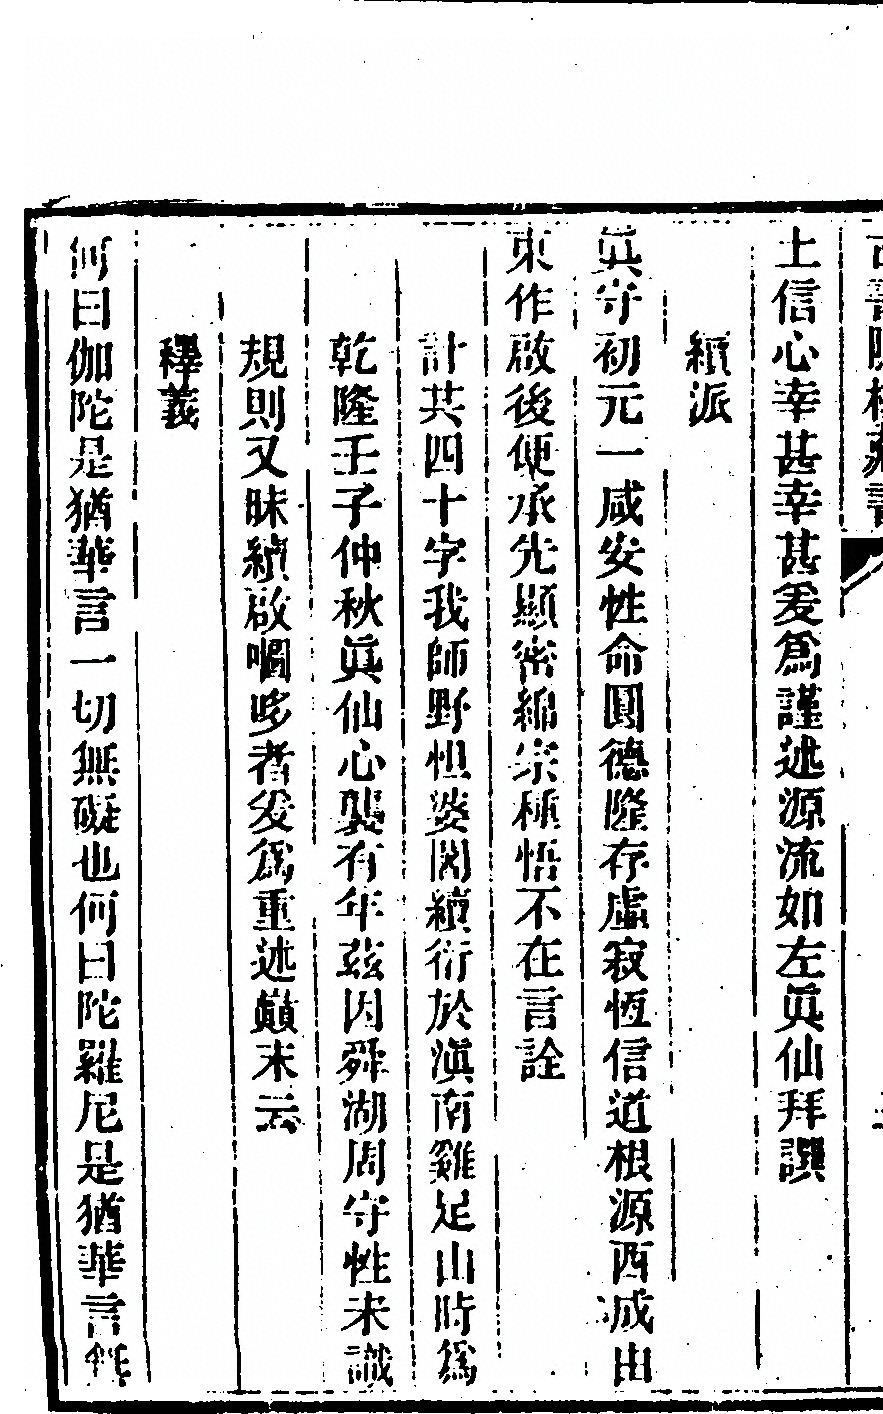 古書隱樓藏書
士信心幸甚幸甚爰爲謹述源流如左眞仙拜譔
續派
眞守初元一咸安性命圓德隆存虛寂恆信道根源西成由
東作啟後便承先顯密綿宗種悟不在言詮
計共四十字我師野怛婆闍續衍於滇南雞足山時爲
乾隆壬子仲秋眞仙心襲有年茲因舜湖周守性未識
規則又昧續啟嘓哆者爰爲重述巔末云
釋義
何曰伽陀是猶華言一切無礙也何曰陀羅尼是猶華言